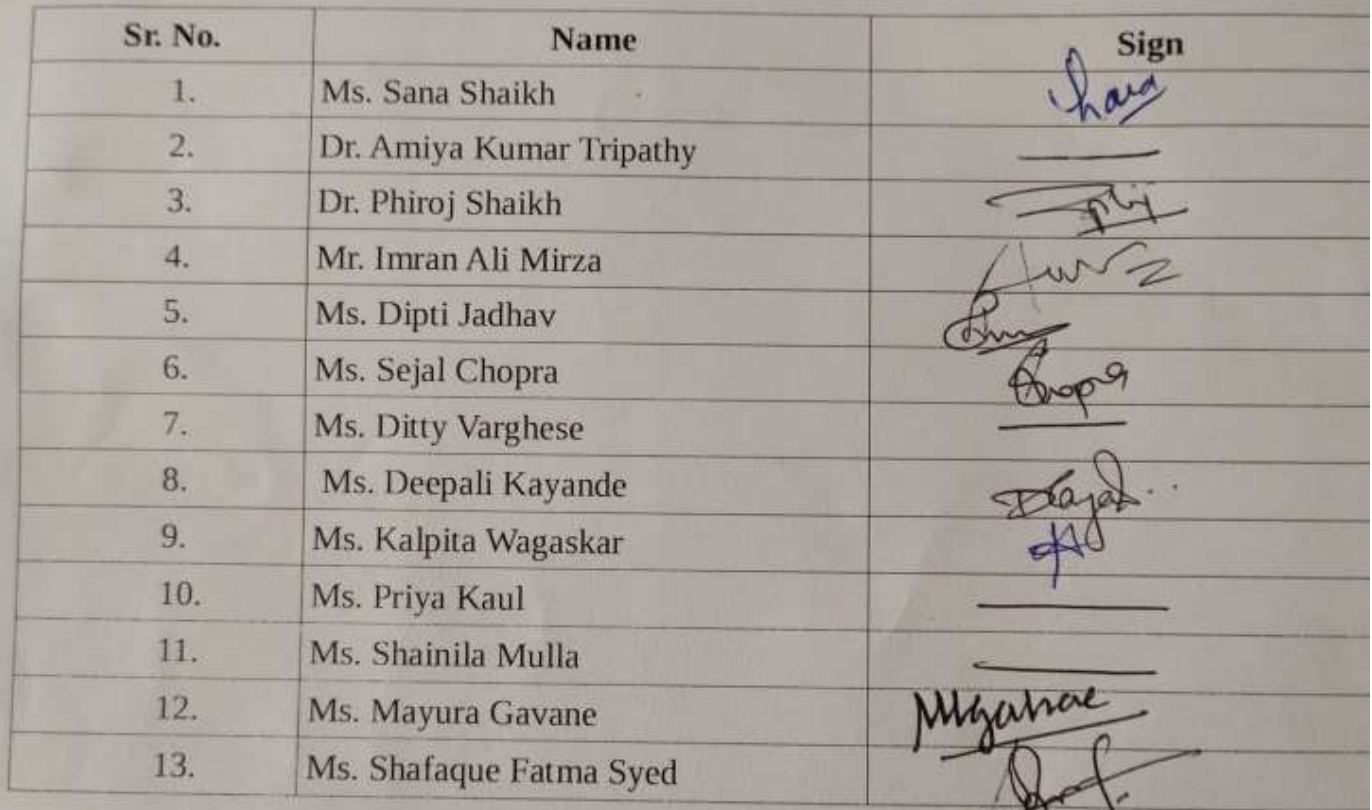 Sr. No. Name Sign
1. Ms. Sana Shaikh
2. Dr. Amiya Kumar Tripathy
3. Dr. Phiroj Shaikh
4. Mr. Imran Ali Mirza
5. Ms. Dipti Jadhav
6. Ms. Sejal Chopra Chopra
7. Ms. Ditty Varghese
8. Ms. Deepali Kayande
9. Ms. Kalpita Wagaskar
10. Ms. Priya Kaul
11. Ms. Shainila Mulla
12. Ms. Mayura Gavane
13. Ms. Shafaque Fatma Syed